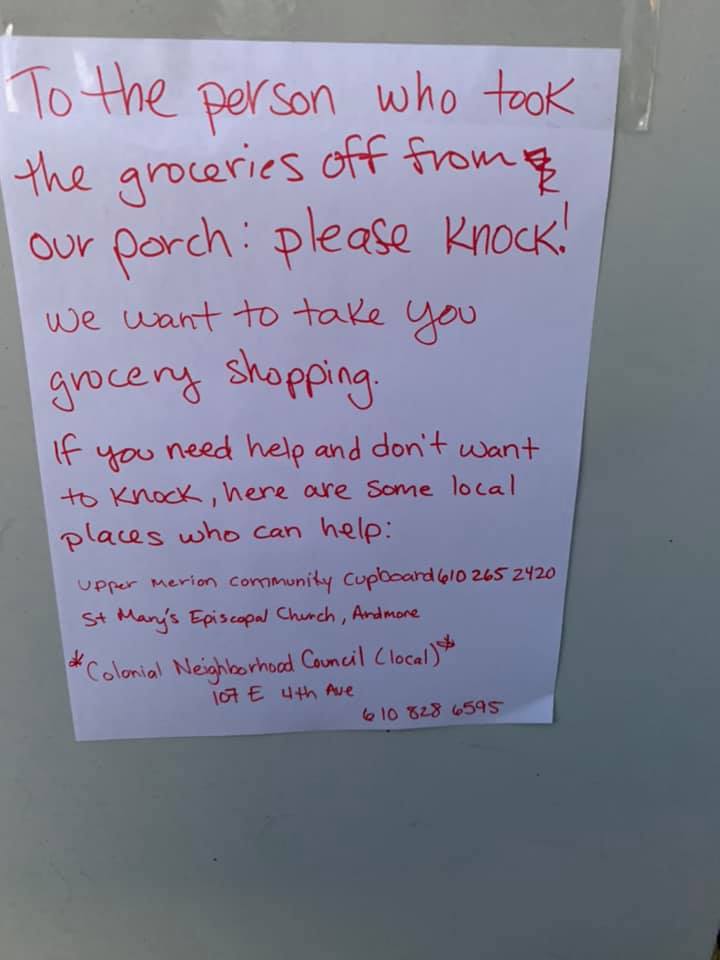 To the person who took
the groceries off from
our porch: please knock!
We want to take you
grocery shopping.
If you need help and don't want
to knock, here are some local
places who can help:
Upper Merion Community Cupboard 610 265 2420
St Mary's Episcopal Church, Ardmore
*Colonial Neighborhood Council (local)*
107 E 4th Ave
610 828 6595